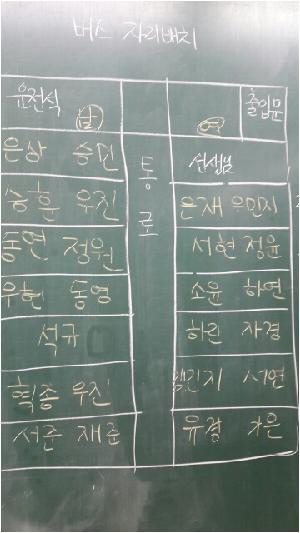 버스 자리배치
운전석 남 여 출입문
은상 승민 통 선생님
승훈 우진 로 은재 우민지
동연 정원 서현 정윤
우현 동영 소윤 하연
석규 하린 자경
혁종 우진 민지 서연
서준 재준 유경 가은